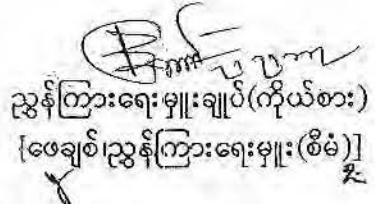 ညွှန်ကြားရေးမှူးချုပ်(ကိုယ်စား)
[ဖေချစ်၊ညွှန်ကြားရေးမှူး(စီမံ)]